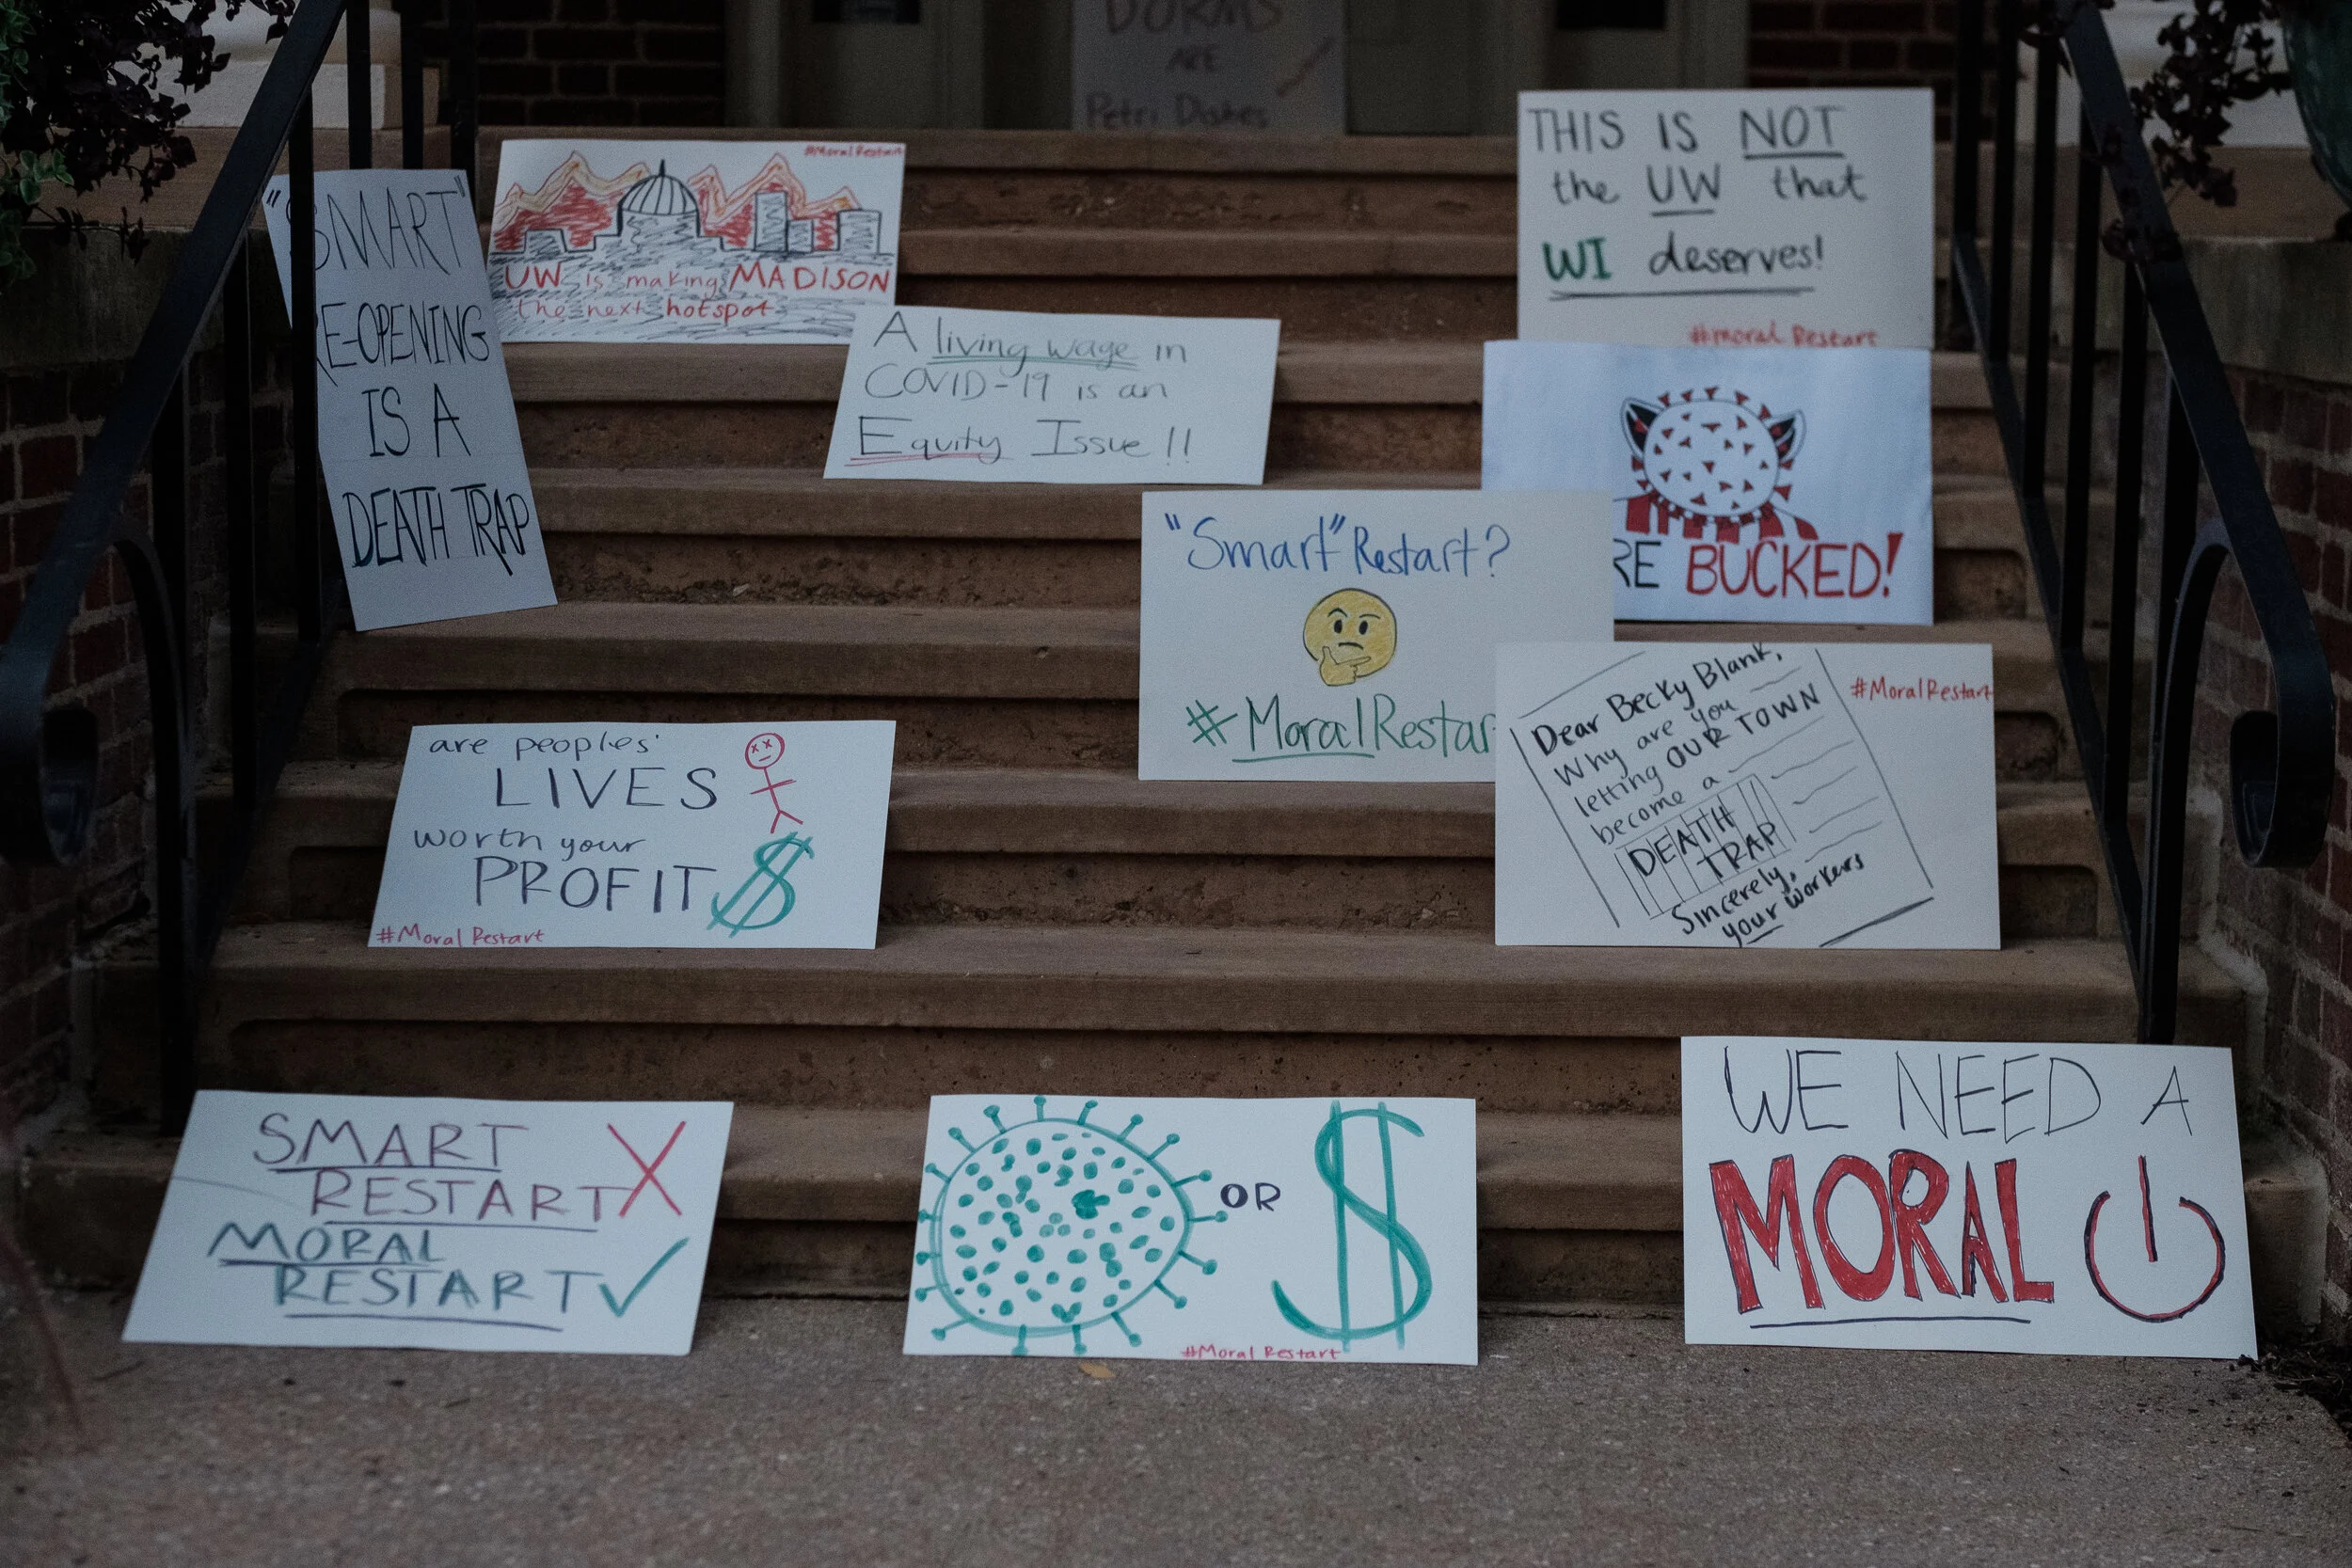 DORMS
ARE
Petri Dishes
"SMART"
RE-OPENING
IS A
DEATH TRAP
#MoralRestart
UW is making MADISON
the next hotspot
THIS IS NOT
the UW that
WI deserves!
#moral Restart
A living wage in
COVID-19 is an
Equity Issue!!
RE BUCKED!
"Smart" Restart?
#MoralRestar
Dear Becky Blank,
Why are you
letting OUR TOWN
become a
DEATH
TRAP
Sincerely,
your workers
#MoralRestart
are peoples'
LIVES
worth your
PROFIT $
#Moral Restart
SMART
RESTART X
MORAL
RESTART ✓
OR $
#Moral Restart
WE NEED A
MORAL